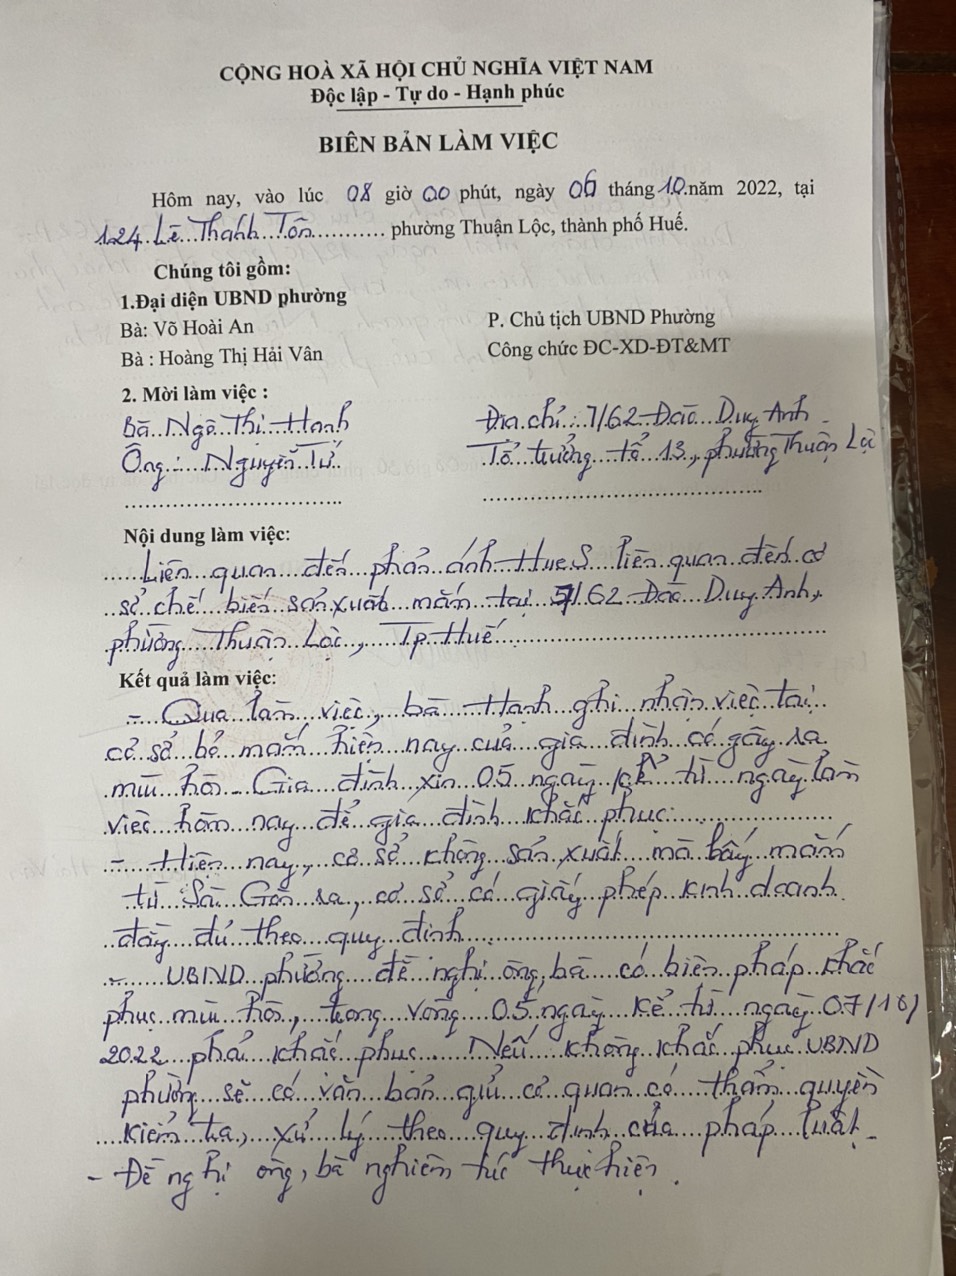 CỘNG HOÀ XÃ HỘI CHỦ NGHĨA VIỆT NAM
Độc lập - Tự do - Hạnh phúc
BIÊN BẢN LÀM VIỆC
Hôm nay, vào lúc 08 giờ 00 phút, ngày 06 tháng 10 năm 2022, tại
124 Lê Thánh Tôn phường Thuận Lộc, thành phố Huế.
Chúng tôi gồm:
1.Đại diện UBND phường
Bà: Võ Hoài An P. Chủ tịch UBND Phường
Bà : Hoàng Thị Hải Vân Công chức ĐC-XD-ĐT&MT
2. Mời làm việc :
Bà Ngô Thị Hạnh Địa chỉ: 7/62 Đào Duy Anh
Ông: Nguyễn Tử Tổ trưởng tổ 13, phường Thuận Lộc
Nội dung làm việc:
Liên quan đến phản ánh HueS liên quan đến cơ
sở chế biến sản xuất mắm tại 7/62 Đào Duy Anh,
phường Thuận Lộc, Tp Huế
Kết quả làm việc:
- Qua làm việc, bà Hạnh ghi nhận việc tại
cơ sở bé mắm hiện nay của gia đình có gây ra
mùi hôi. Gia đình xin 05 ngày kể từ ngày làm
việc hôm nay để gia đình khắc phục.
- Hiện nay, cơ sở không sản xuất mà lấy mắm
từ Sài Gòn ra, cơ sở có giấy phép kinh doanh
đầy đủ theo quy định
- UBND phường đề nghị ông, bà có biện pháp khắc
phục mùi hôi, trong vòng 05 ngày kể từ ngày 07/10/
2022 phải khắc phục. Nếu không khắc phục UBND
phường sẽ có văn bản gửi cơ quan có thẩm quyền
kiểm tra, xử lý theo quy định của pháp luật.
- Đề nghị ông, bà nghiêm túc thực hiện.